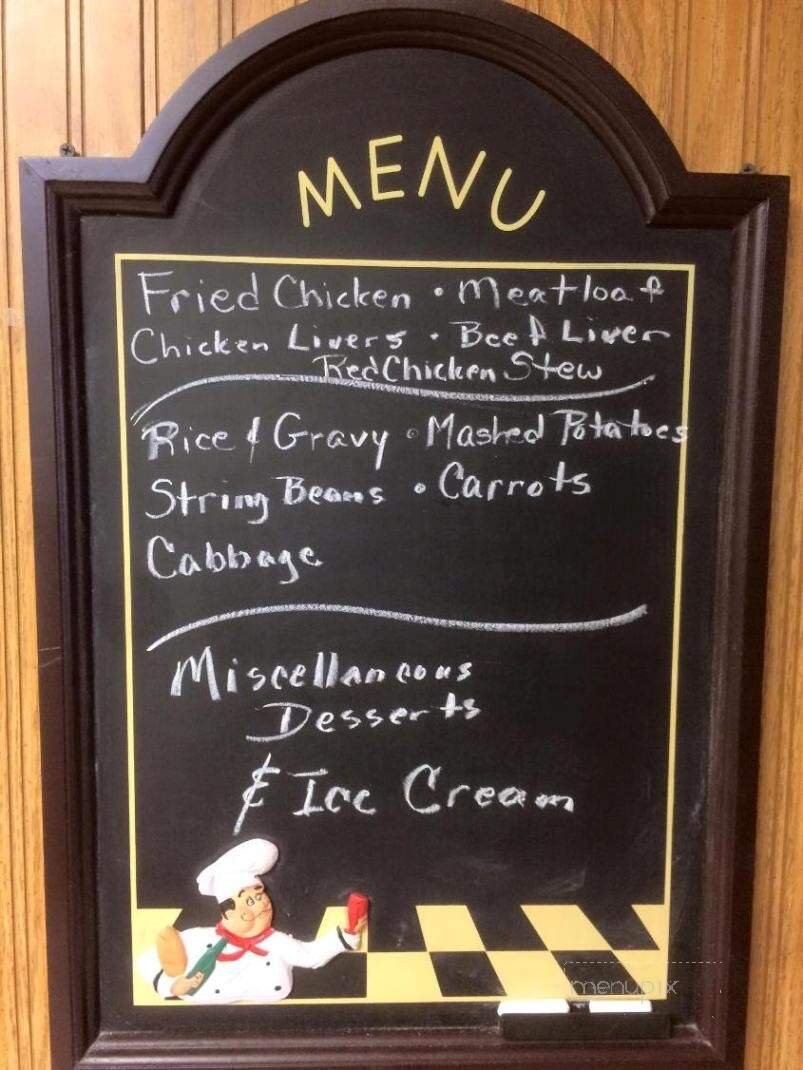 MENU
Fried Chicken • Meatloaf
Chicken Livers • Beef Liver
Red Chicken Stew
Rice & Gravy • Mashed Potatoes
String Beans • Carrots
Cabbage
Miscellaneous
Desserts
& Ice Cream
menupix